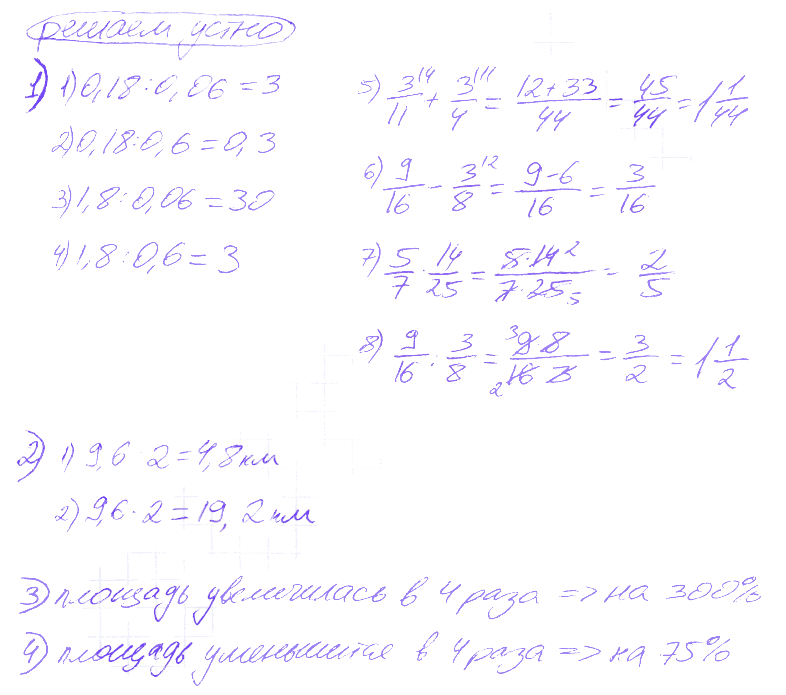 решаем устно
1) 1) 0,18:0,06=3
2) 0,18:0,6=0,3
3) 1,8:0,06=30
4) 1,8:0,6=3
5) 3/11 \4 + 3/4 \11 = (12+33)/44 = 45/44 = 1 1/44
6) 9/16 - 3/8 \2 = (9-6)/16 = 3/16
7) 5/7 · 14/25 = (5·14 2)/(7·25 5) = 2/5
8) 9/16 : 3/8 = (3 9 8)/(2 16 3) = 3/2 = 1 1/2
2) 1) 9,6 · 2=4,8 км
2) 9,6·2=19,2 км
3) площадь увеличилась в 4 раза => на 300%
4) площадь уменьшится в 4 раза => на 75%